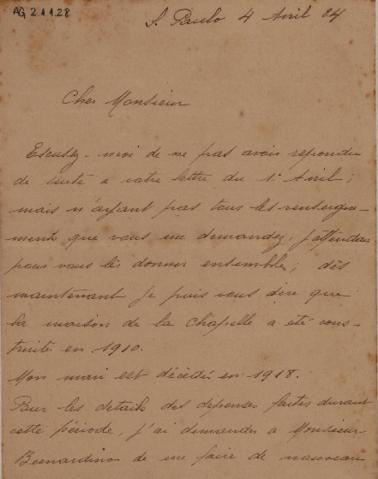 AG 2.1.1.28
S. Paulo 4 Avril 24
Cher Monsieur
Excusez-moi de ne pas avoir repondu
de suite a votre lettre du 1er Avril;
mais n'ayant pas tous les renseigne-
ments que vous me demandez, j'attendais
pour vous les donner ensembles; dès
maintenant je puis vous dire que
la maison de la Chapelle a eté cons-
truite en 1910.
Mon mari est décédé en 1918.
Pour les details des depenses faites durant
cette période, j'ai demandée a Monsieur
Bernardino de me faire de nouveau